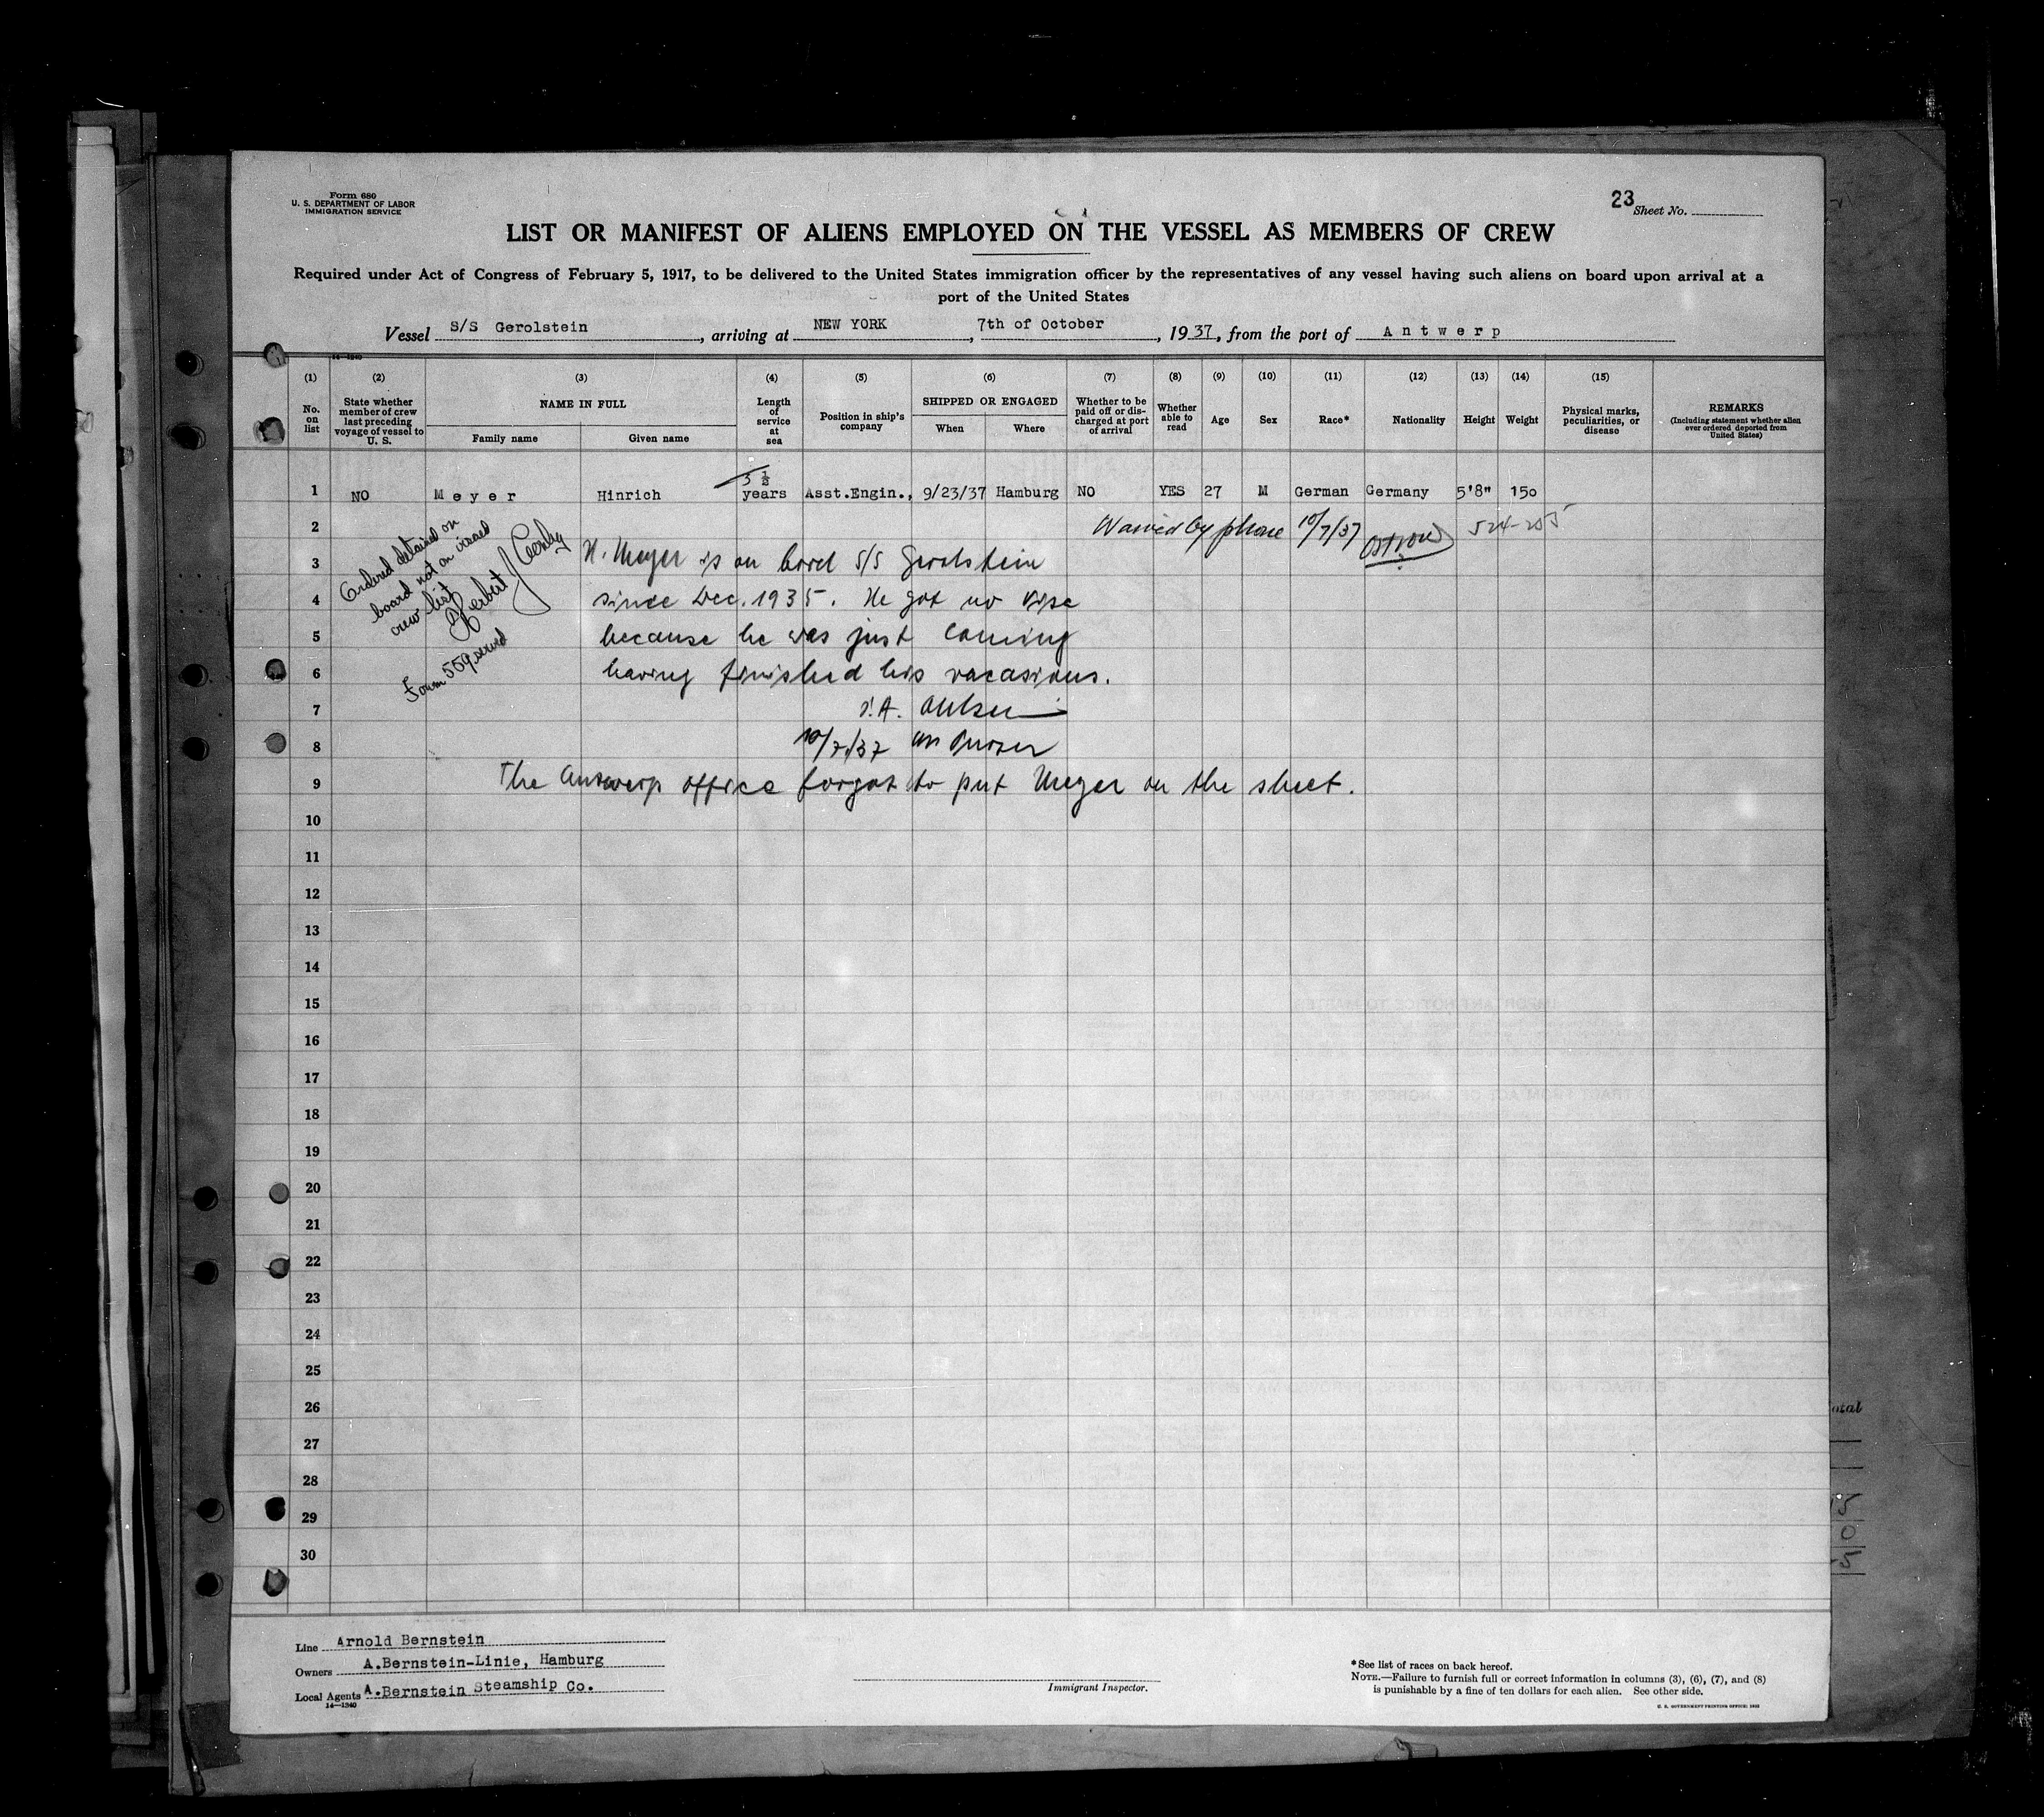 Form 680
U. S. DEPARTMENT OF LABOR
IMMIGRATION SERVICE
23 Sheet No.
LIST OR MANIFEST OF ALIENS EMPLOYED ON THE VESSEL AS MEMBERS OF CREW
Required under Act of Congress of February 5, 1917, to be delivered to the United States immigration officer by the representatives of any vessel having such aliens on board upon arrival at a
port of the United States
Vessel S/S Gerolstein, arriving at NEW YORK, 7th of October, 1937, from the port of Antwerp
14—1240
(1) (2) (3) (4) (5) (6) (7) (8) (9) (10) (11) (12) (13) (14) (15)
No. on list
State whether member of crew last preceding voyage of vessel to U. S.
NAME IN FULL
Family name Given name
Length of service at sea
Position in ship's company
SHIPPED OR ENGAGED
When Where
Whether to be paid off or discharged at port of arrival
Whether able to read
Age
Sex
Race*
Nationality
Height
Weight
Physical marks, peculiarities, or disease
REMARKS
(Including statement whether alien ever ordered deported from United States)
1 NO Meyer Hinrich 3 ½ years Asst.Engin., 9/23/37 Hamburg NO YES 27 M German Germany 5'8" 150
2 Waived by phone 10/7/37 524-205
Ordered detained on
board not on visaed
crew list
Herbert J
Form 559 served
3 H. Meyer is on bord S/S Gerolstein
4 since Dec. 1935. He got no vise
5 because he was just coming
6 having finished his vacasions.
7
8 10/7/37 Purser
9 The Antwerp office forgot to put Meyer on the sheet.
10
11
12
13
14
15
16
17
18
19
20
21
22
23
24
25
26
27
28
29
30
Line Arnold Bernstein
Owners A.Bernstein-Linie, Hamburg
Local Agents A.Bernstein Steamship Co.
14—1240
Immigrant Inspector.
*See list of races on back hereof.
NOTE.—Failure to furnish full or correct information in columns (3), (6), (7), and (8)
is punishable by a fine of ten dollars for each alien. See other side.